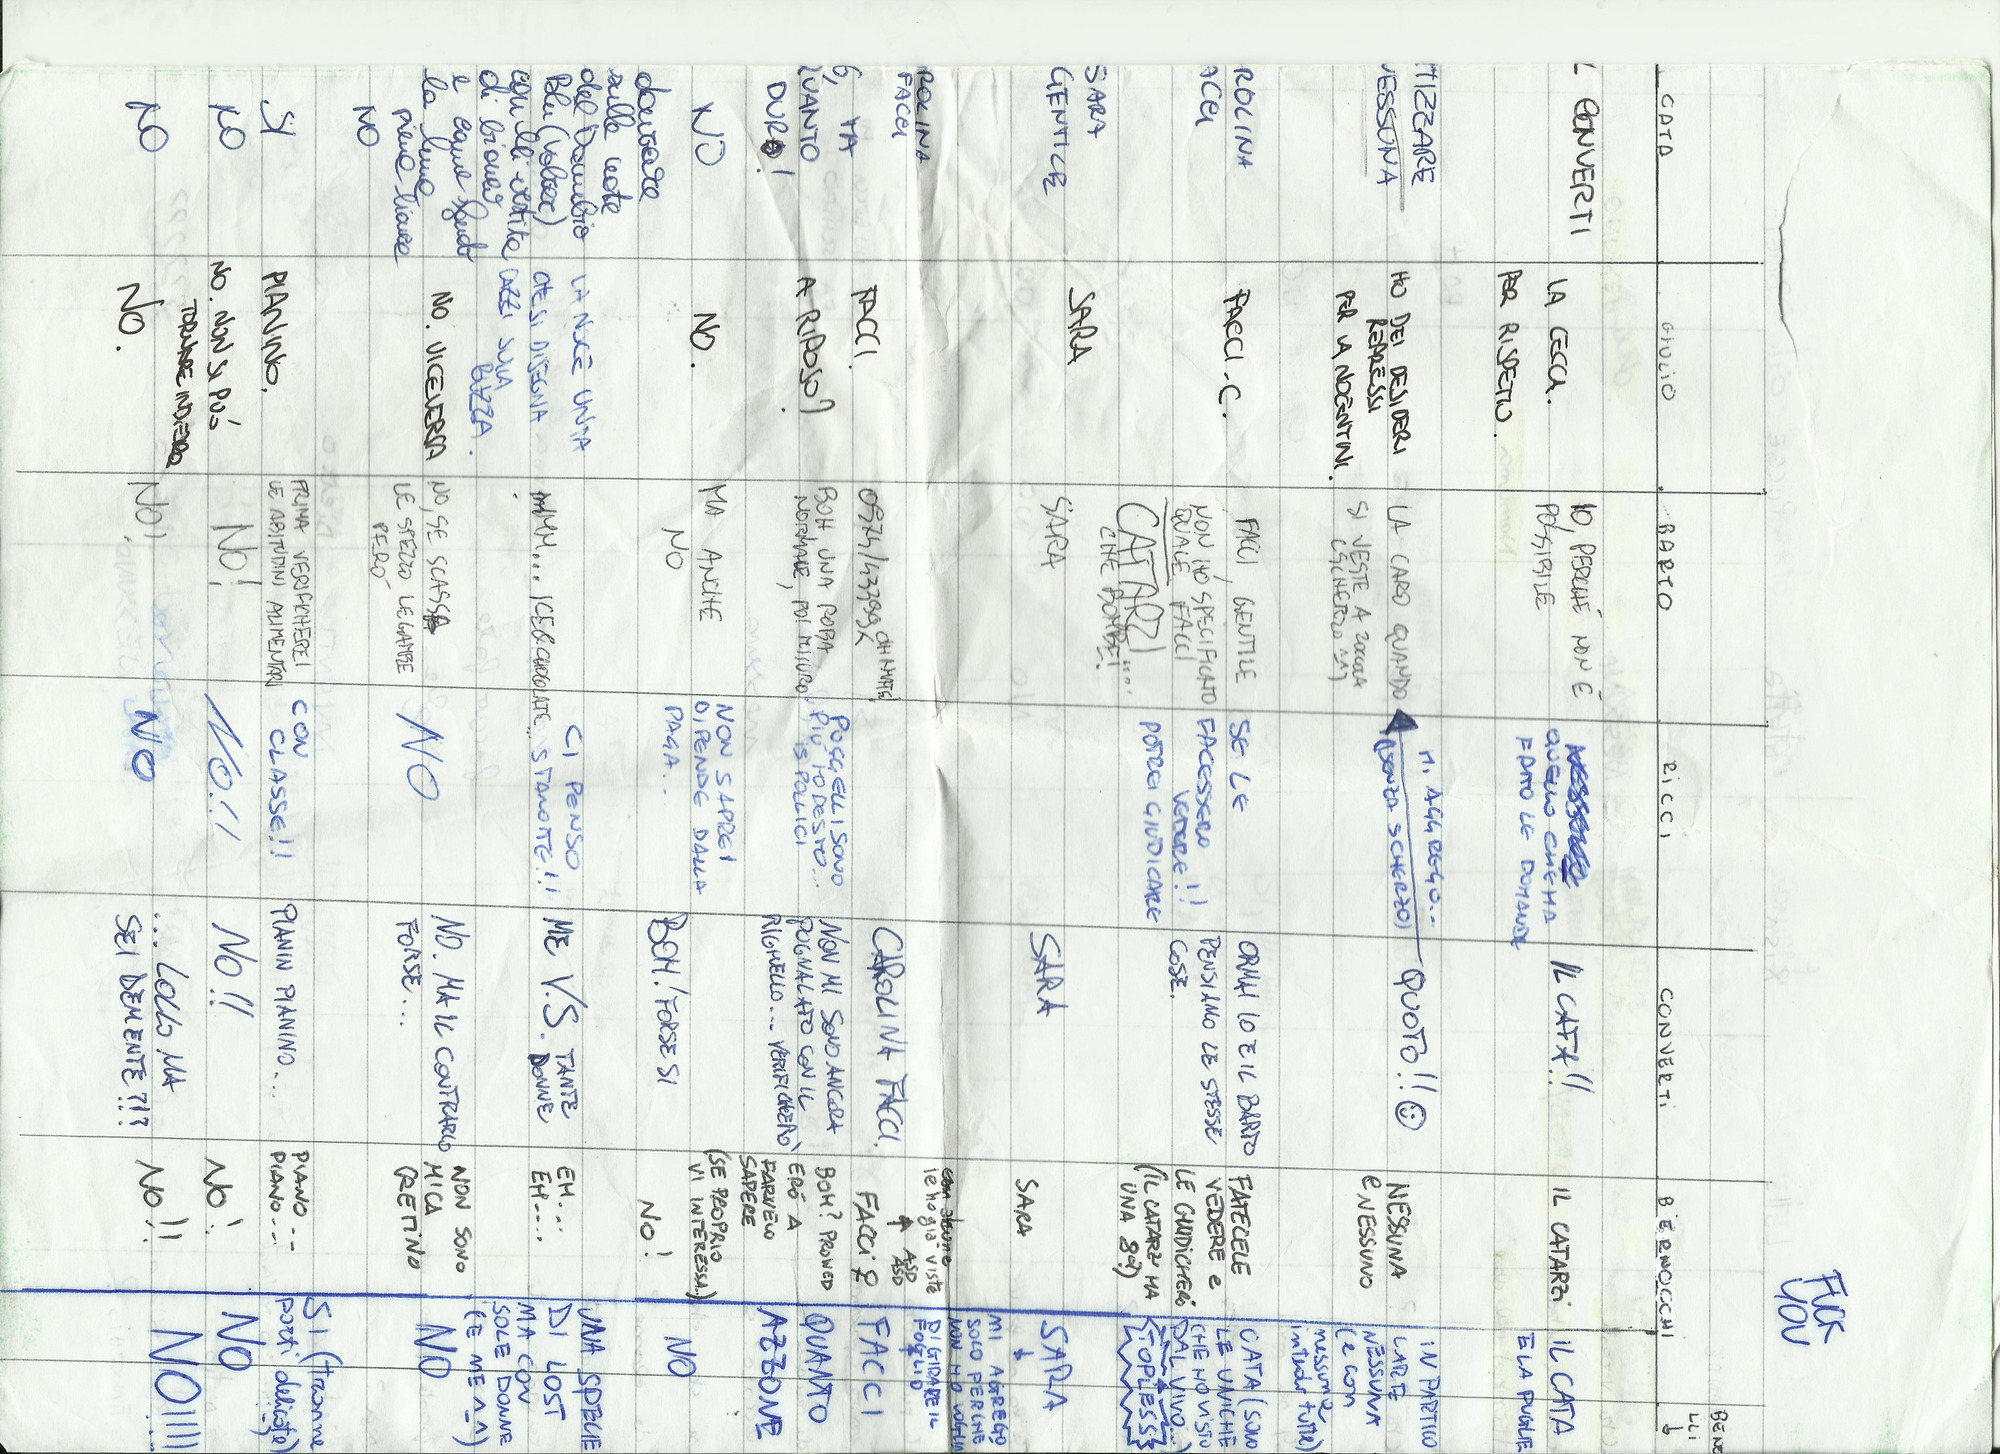 FUCK
YOU
CATA
GIULIO
BARTO
RICCI
CONVERTI
BERNOCCHI
BENE
LLI
↓
L CONVERTI
LA CECCA.
PER RISPETTO.
IO, PERCHÉ NON È
POSSIBILE
QUELLO CHE HA
FATTO LE DOMANDE
IL CATA!!
IL CATARZI
IL CATA
E LA PUGLIE
TIZZARE
NESSUNA
HO DEI DESIDERI
REPRESSI
PER LA NOCENTINI.
LA CARO QUANDO
SI VESTE A ZOCCOLA
(SCHERZO ^^)
MI AGGREGO...
(SENZA SCHERZO)
QUOTO!! ☺
NESSUNA
E NESSUNO
IN PARTICO
LARE
NESSUNA
(e con
nessuna
intendo tutte)
ROLINA
ACCI
FACCI C.
FACCI, GENTILE
NON HO SPECIFICATO
QUALE FACCI
CATARZI....
CHE BOMBE!
SE LE
FACESSERO
VEDERE!!
POTREI GIUDICARE
ORMAI IO E IL BARTO
PENSIAMO LE STESSE
COSE.
FATECELE
VEDERE e
LE GIUDICHERÒ
(IL CATARZI HA
UNA 8ª?)
CATA (SONO
LE UNICHE
CHE HO VISTO
DAL VIVO...)
STOPLESS
SARA
GENTILE
SARA
SARA
SARA
SARA
SARA
↓
MI AGREGO
SOLO PERCHE
NON HO VOGLIA
DI GIRARE IL
FOGLIO
ROLINA
FACCI
FACCI.
0574/43399X
CHIAMATE!
CAROLINA FACCI.
le ho già viste
ASD
ASD
FACCI ♀
FACCI
QUANTO
DURO!
A RIPOSO?
BOH, UNA ROBA
NORMALE, POI MISURO
POGGELLI SONO
PIÙ IO DESTO...
15 POLLICI
NON MI SONO ANCORA
PUGNALATO CON IL
RIGHELLO... VERIFICHERÒ
BOH? PROVVED
ERÒ A
FARVELO
SAPERE
(SE PROPRIO
VI INTERESSA)
QUANTO
AZZONE
NO
NO.
MA ANCHE
NO
NON SAPREI
DIPENDE DALLA
PAGA...
BOH! FORSE SI
NO!
NO
dottorare
sulle note
del Danubio
Blu (valzer)
con lei vestita
di bianco
e cigno sfondo
la luna
piena bianca
LA NOCE UNTA
CHE SI DISEGNA
CAZZI SULLA
BUZZA.
MMM... ICEBCHOCOLATE
CI PENSO
STANOTTE!!!
ME V.S. TANTE
DONNE
EH....
EH....
UNA SPECIE
DI LOST
MA CON
SOLE DONNE
(E ME ^_^)
NO
NO. VICEVERSA
NO, SE SCAPPA
LE SPEZZO LE GAMBE
PERÒ
NO
NO. MA IL CONTRARIO
FORSE...
NON SONO
MICA
CRETINO
NO
SI
PIANINO.
PRIMA VERIFICHEREI
LE ABITUDINI ALIMENTARI
CON
CLASSE!!
PIANIN PIANINO...
PIANO...
PIANO...
SI (tranne
parti delicate)
NO
NO. NON SI PUÒ
TORNARE INDIETRO
NO!
NO!!
NO!!
NO!
NO
NO
NO.
NO!
NO
... LOLLO MA
SEI DEMENTE?!?
NO!!
NO!!!!!...